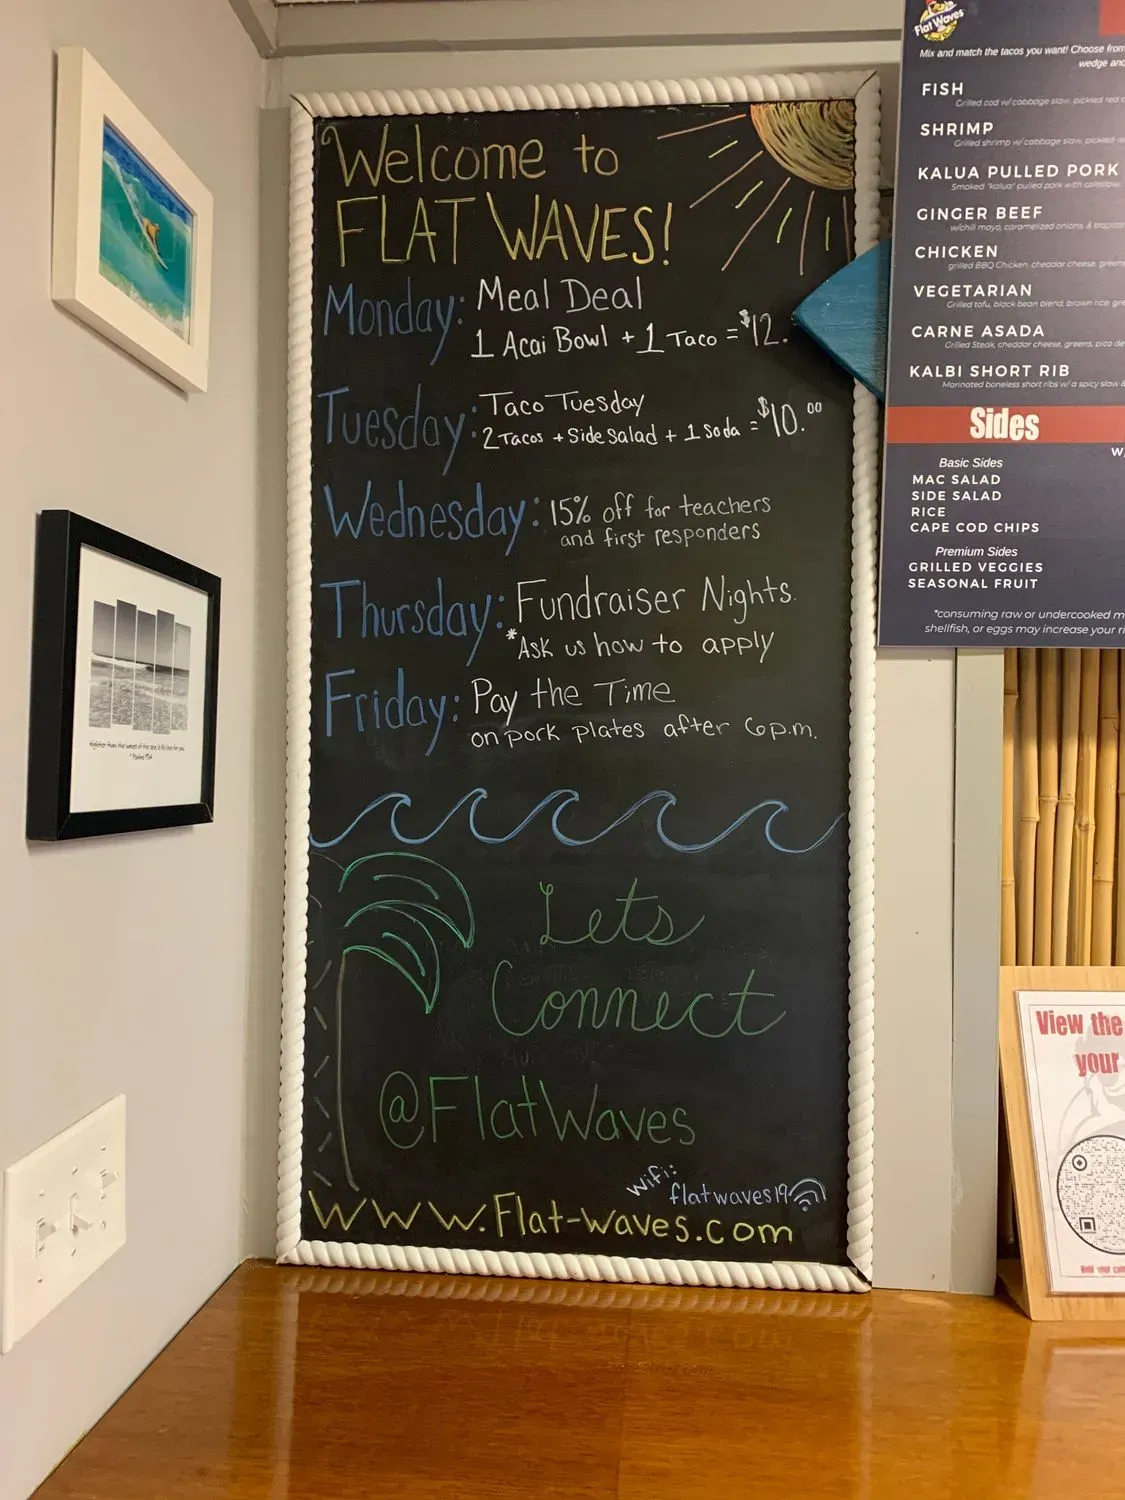 Welcome to
FLAT WAVES!
Monday: Meal Deal
1 Acai Bowl + 1 Taco = $12.
Tuesday: Taco Tuesday
2 Tacos + Side Salad + 1 Soda = $10.00
Wednesday: 15% off for teachers
and first responders
Thursday: Fundraiser Nights.
*Ask us how to apply
Friday: Pay the Time
on pork plates after 6p.m.
Lets
Connect
@FlatWaves
Wifi:
flatwaves19
www.Flat-waves.com
Flat Waves
Mix and match the tacos you want! Choose from
wedge and
FISH
Grilled cod w/ cabbage slaw, pickled red
SHRIMP
Grilled shrimp w/ cabbage slaw, pickled
KALUA PULLED PORK
Smoked "kalua" pulled pork with coleslaw,
GINGER BEEF
w/chili mayo, caramelized onions, &
CHICKEN
grilled BBQ Chicken, cheddar cheese, greens
VEGETARIAN
Grilled tofu, black bean blend, brown rice,
CARNE ASADA
Grilled Steak, cheddar cheese, greens, pico de
KALBI SHORT RIB
Marinated boneless short ribs w/ a spicy slaw &
Sides
Basic Sides
MAC SALAD
SIDE SALAD
RICE
CAPE COD CHIPS
Premium Sides
GRILLED VEGGIES
SEASONAL FRUIT
*consuming raw or undercooked
shellfish, or eggs may increase your
View the
your
Hold your
Mightier than the waves of the sea, is his love for you.